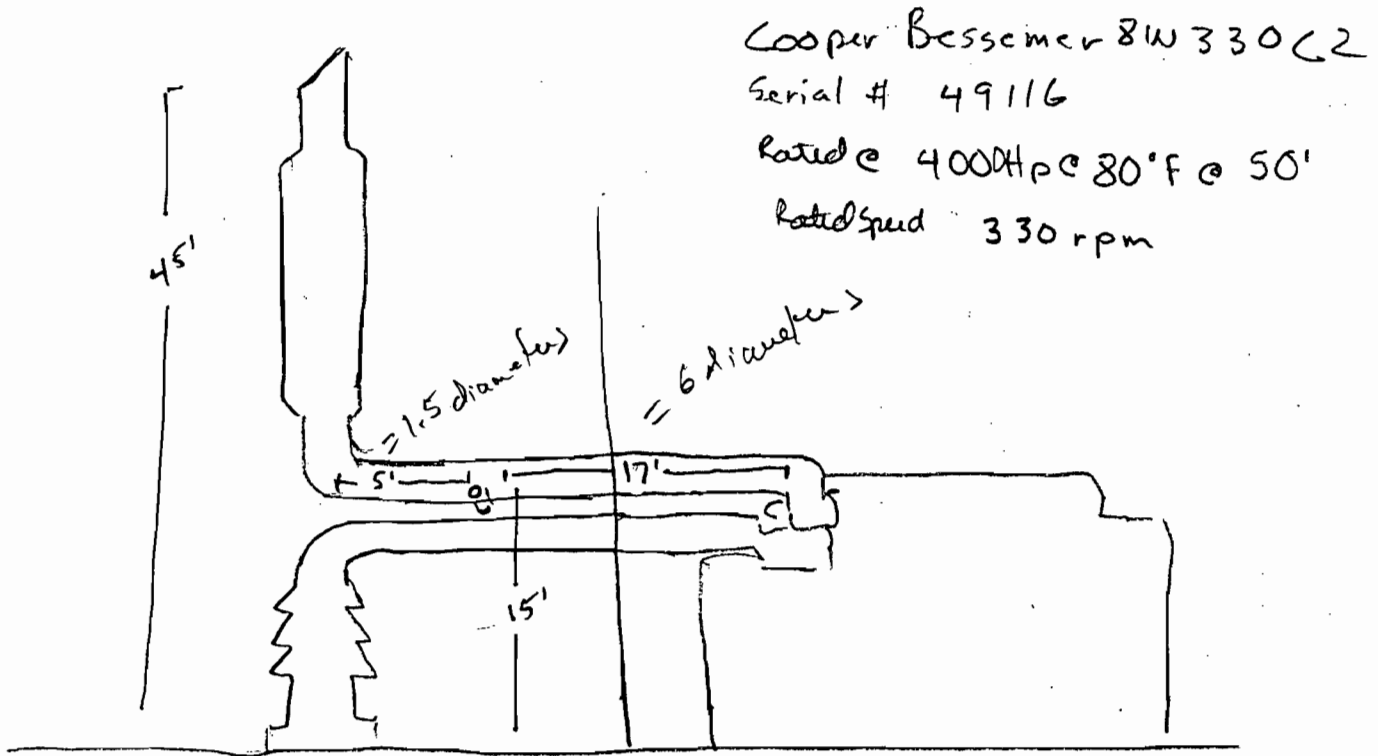 Cooper Bessemer 8W330C2
Serial # 49116
Rated @ 4000Hp @ 80°F @ 50'
Rated Speed 330 rpm
45'
= 1.5 diameter
= 6 diameter
5'
17'
15'